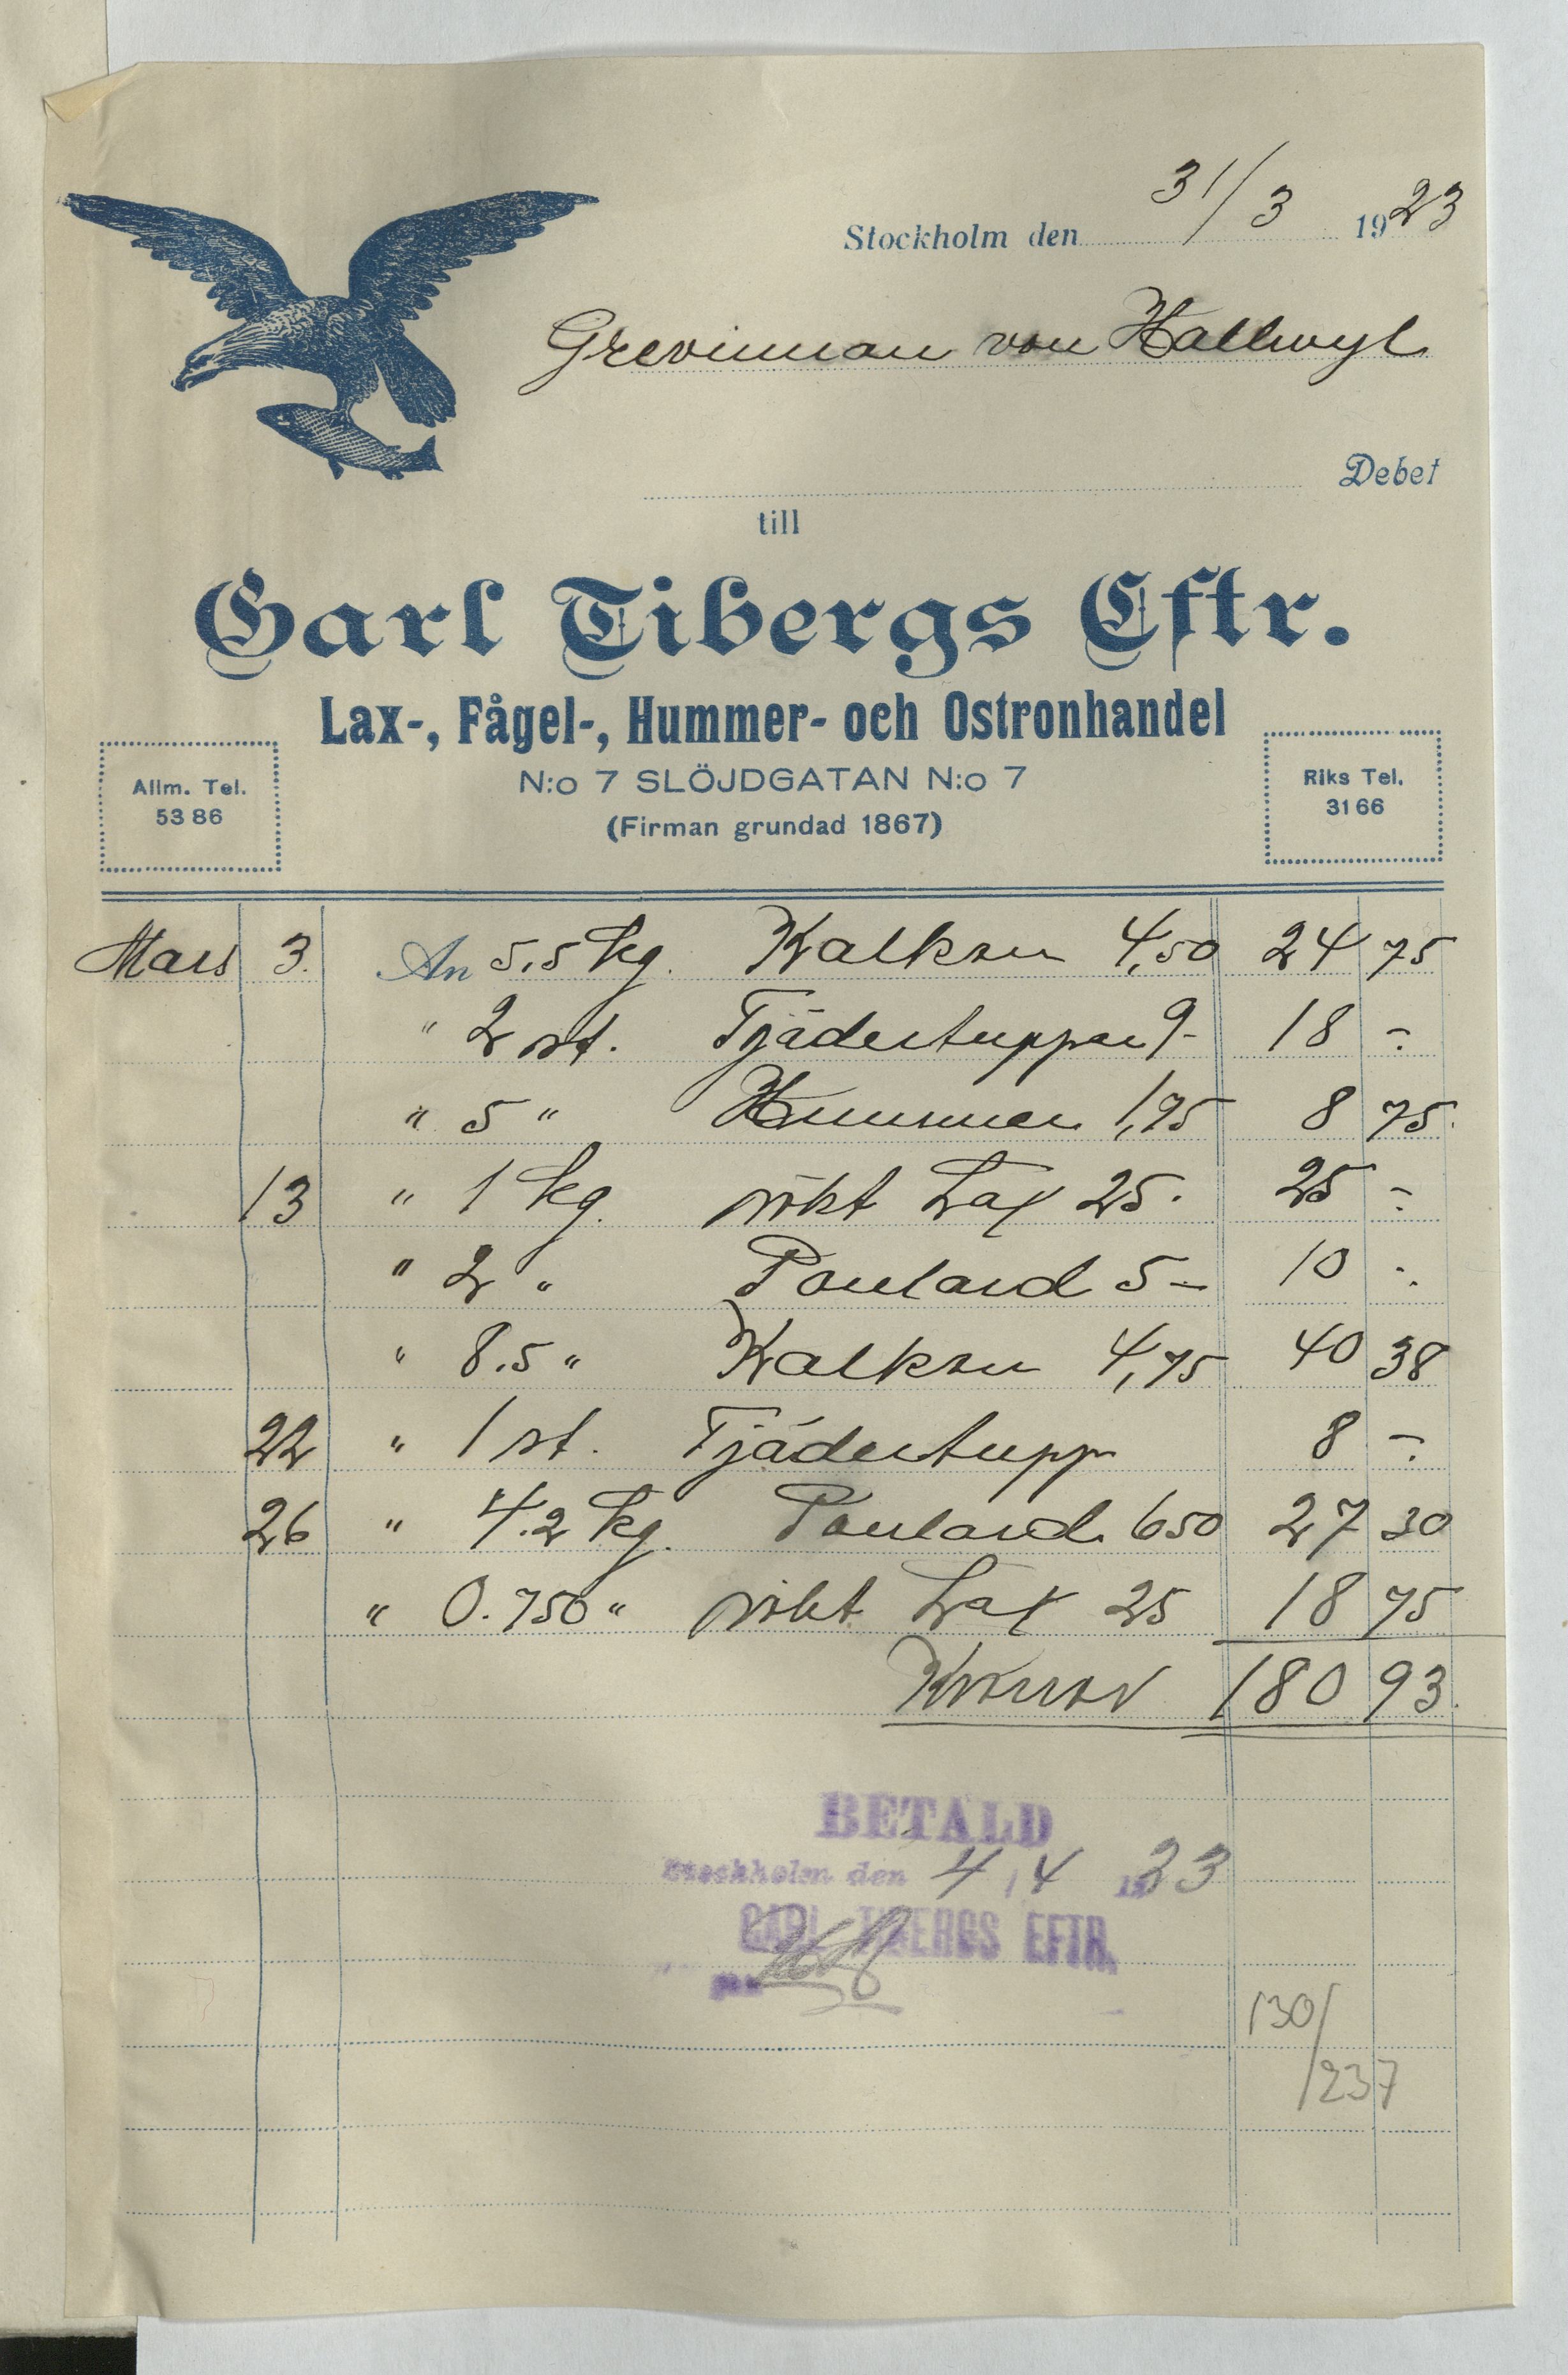 Stockholm den 31/3 1923
Grevinnan von Hallwyl
Debet
till
Carl Tibergs Eftr.
Lax-, Fågel-, Hummer- och Ostronhandel
Allm. Tel. 53 86
N:o 7 SLÖJDGATAN N:o 7
Riks Tel. 31 66
(Firman grundad 1867)
Mars 3. An 5,5 kg. Kalkon 4,50 24 75
" 2 st. Tjädertuppar 9- 18 -
" 5 " Hummer 1,75 8 75
13 " 1 kg. rökt Lax 25. 25 -
" 2 " Poulard 5- 10 -
" 8.5 " Kalkon 4,75 40 38
22 " 1 st. Tjädertupp 8 -
26 " 4.2 kg. Poulard 650 27 30
" 0.750 " rökt Lax 25 18 75
Kronor 180 93
BETALD
Stockholm den 4/4 1923
CARL TIBERGS EFTR.
130/
/237